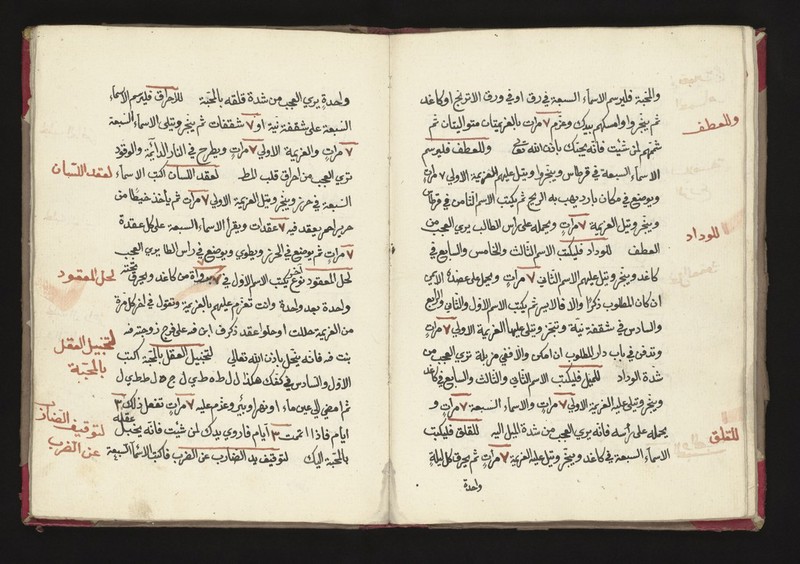 والمحبة فليرسم الاسماء السبعة في رق او في ورق الاترنج او كاغد
ثم يبخروا وامسكهم بيدك وعزم ٧ مرات بالعزيمتان متواليتان ثم
وللعطف
شمهم لمن شيت فانه يحبك باذن الله تعالى وللعطف فليرسم
الاسماء السبعة في قرطاس ويبخروا ويتل عليهم العزيمة الاولي ٧ مرات
ويوضع في مكان بارد يهب به الريح ثم يكتب الاسم الثامن في قرطاس
ويبخر وتيل العزيمة ٧ مرات ويحمله على راس الطالب يري العجب من
للوداد
العطف للوداد فليكتب الاسم الثالث والخامس والسابع في
كاغد ويبخر وتيل عليهم الاسم الثاني ٧ مرات ويحمل على عضده الايمن
ان كان المطلوب ذكرا والا فالايسر ثم يكتب الاسم الاول والثاني والرابع
والسادس في شقفة نية وتبخر وتتلى عليها العزيمة الاولي ٧ مرات
وتدفن في باب دار المطلوب ان امكن والا ففي مزبلة تري العجب من
شدة الوداد للميل فليكتب الاسم الثاني والثالث والسابع في كاغد
ويبخر وتتلى عليه العزيمة الاولي ٧ مرات والاسماء السبعة ٧ مرات و
للقلق
يحمله على راسه فانه يري العجب من شدة الميل اليه للقلق فليكتب
الاسماء السبعة في كاغد ويبخر وتيل عليه العزيمة ٧ مرات ثم يحرق كل ليلة
واحدة
واحدة يري العجب من شدة قلقه بالمحبة للاحراق فليرسم الاسماء
السبعة على شقفة نية او ٧ شقفات ثم يبخر وتتلى الاسماء السبعة
٧ مرات والعزيمة الاولي ٧ مرات ويطرح في النار الدائمة والوقود
لعقد اللسان
تري العجب من احراق قلب المط لعقد اللسان اكتب الاسماء
السبعة في حرز ويبخر وتيل العزيمة الاولي ٧ مرات ثم ياخذ خيطا من
حرير احمر يعقد فيه ٧ عقدات ويقرا الاسماء السبعة على كل عقدة
٧ مرات ثم يوضع في الحرز ويطوي ويوضع في راس الطا يري العجب
لحل المعقود
لحل المعقود نوع اخر يكتب الاسم الاول في ٧ من كاغد ويحرق
واحدة بعد واحدة وانت تعزم عليهم بالعزيمة وتقول في اخر كل مرة
من العزيمة حللت او حلوا عقد ذكر ف ابن فه على فرج زوجته فه
لتخبيل العقل بالمحبة
بنت فه فانه ينحل باذن الله تعالى لتخبيل العقل بالمحبة اكتب
الاول والسادس في كفك هكذا
ثم امض الي عين ماء او نهر او بير وعزم عليه ٧ مرات تفعل ذلك ٣
ايام فاذا اتممت ٣ ايام فاروي يدك لمن شيت فانه يختبل عقله
لتوقيف الضارب عن الضرب
بالمحبة اليك لتوقيف يد الضارب عن الضرب فاكتب الاسماء السبعة